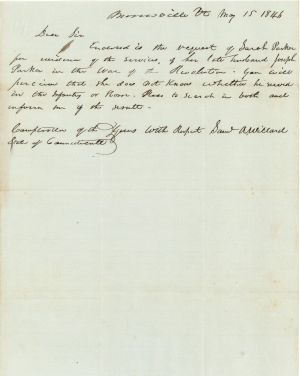 Morrisville Vt May 15 1846
Dear Sir
Enclosed is the request of Sarah Parker
for evidence of the services of her late husband Joseph
Parker in the War of the Revolution. You will
perceive that she does not know whether he served
in the Infantry or Navy. Please to search in both and
inform me of the result.
Comptroller of the Yours with Respect Saml A Willard
State of Connecticut